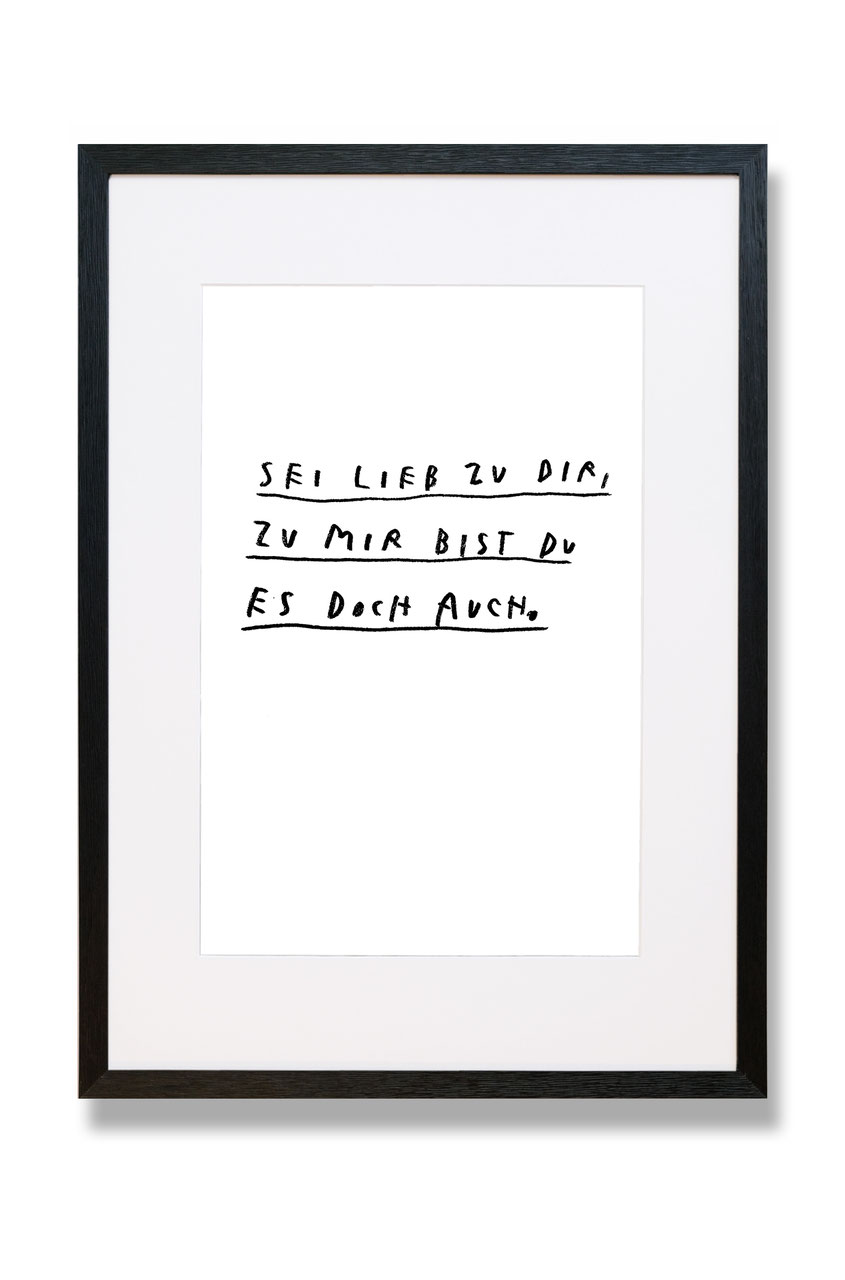 SEI LIEB ZU DIR,
ZU MIR BIST DU
ES DOCH AUCH.